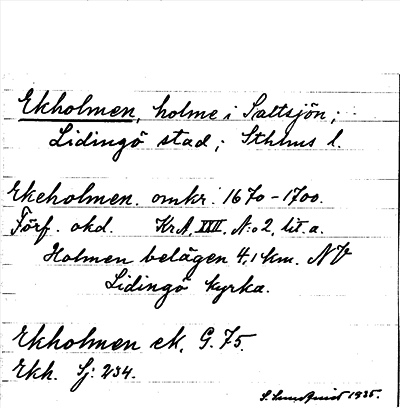 Ekholmen, holme i Saltsjön;
Lidingö stad; Sthlms l.
Ekeholmen. omkr. 1670-1700.
Förf. okd. KrA, XIII, N:o 2, lit. a.
Holmen belägen 4,1 km. NV
Lidingö kyrka.
Ekholmen ek. G. 75.
Ekh. Sj: 234.
S. Lundqvist 1935.